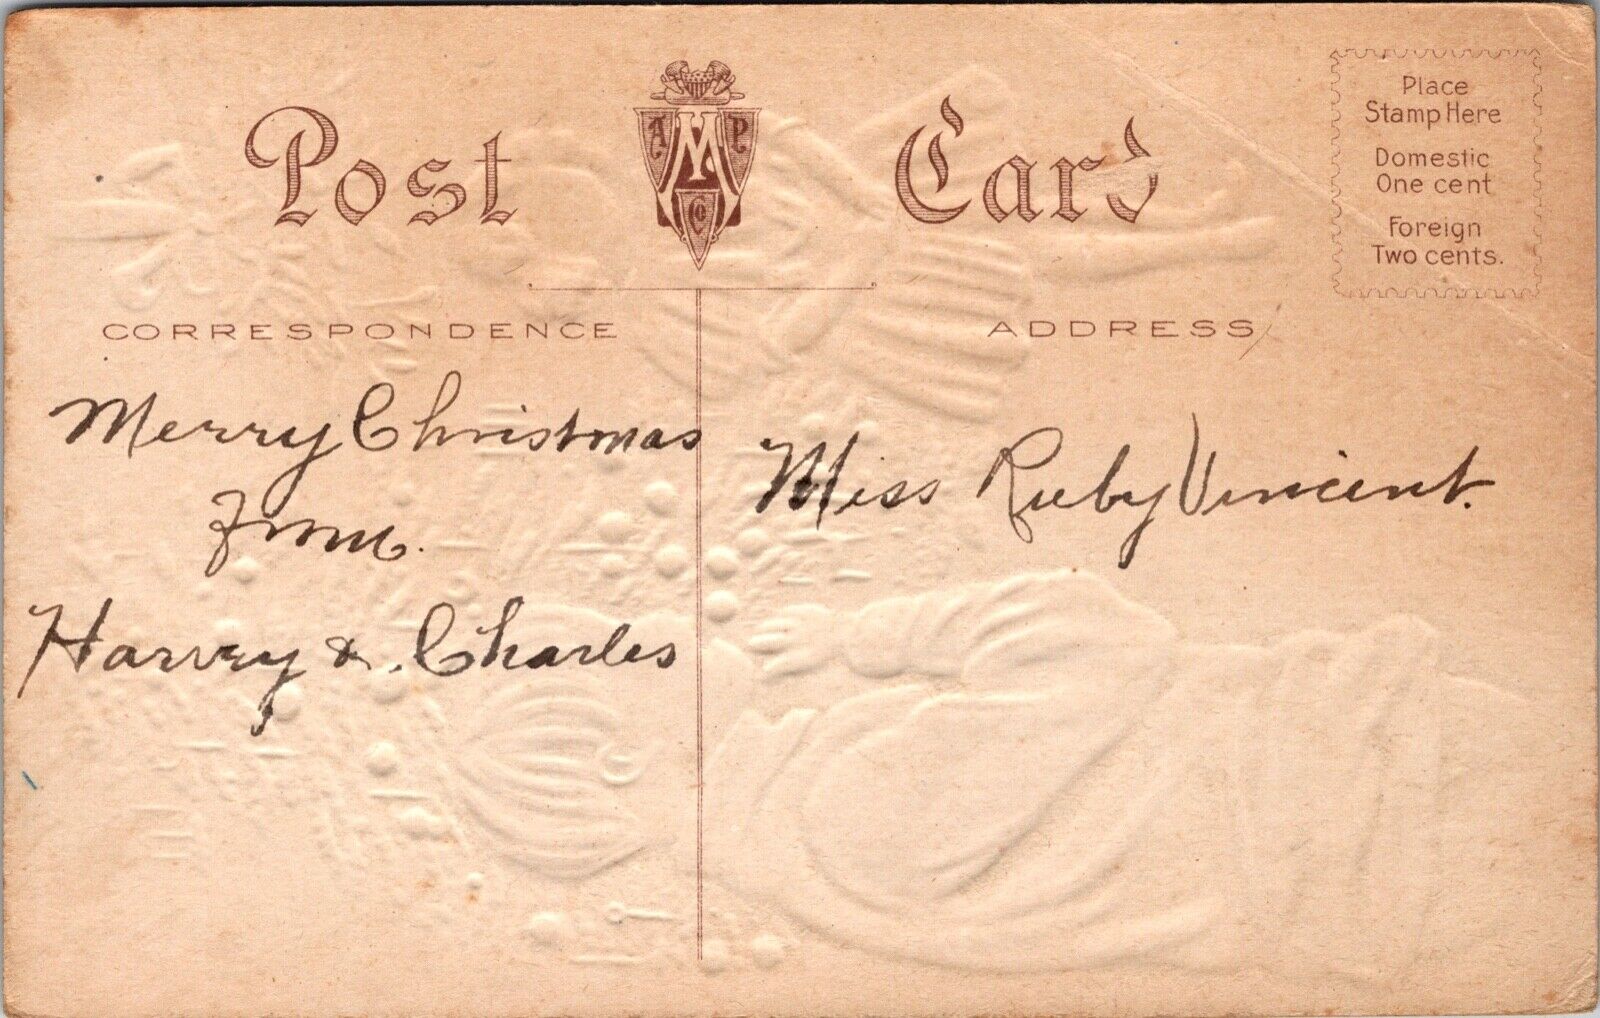 Post Card
A M P Co
Place
Stamp Here
Domestic
One cent
Foreign
Two cents.
CORRESPONDENCE
ADDRESS
Merry Christmas
from.
Harvey & Charles
Miss Ruby Vincent.